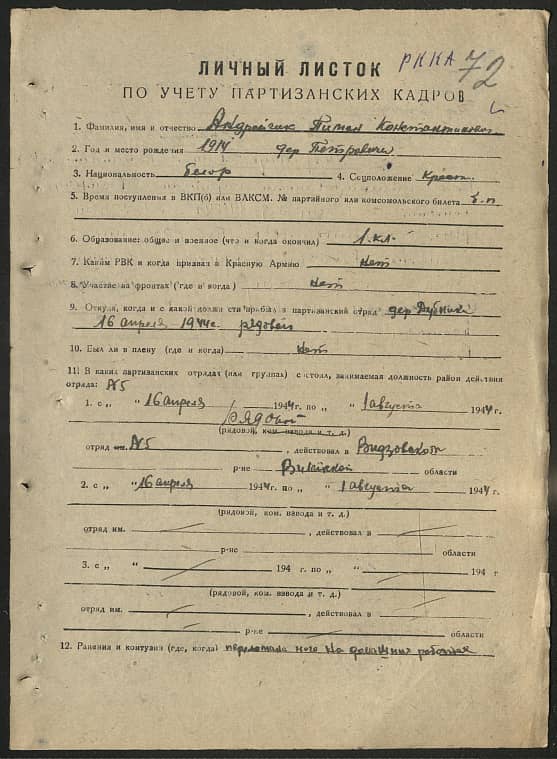 РККА 72
ЛИЧНЫЙ ЛИСТОК
ПО УЧЕТУ ПАРТИЗАНСКИХ КАДРОВ
1. Фамилия, имя и отчество Андрейчик Пимен Константинович
2. Год и место рождения 1914 дер Петровичи
3. Национальность белор 4. Соцположение Крест.
5. Время поступления в ВКП(б) или ВЛКСМ. № партийного или комсомольского билета б.п
6. Образование: общее и военное (что и когда окончил) 1.кл.
7. Каким РВК и когда призван в Красную Армию нет
8. Участие на фронтах (где и когда) нет
9. Откуда, когда и с какой должности прибыл в партизанский отряд дер Дубники
16 апреля 1944г. рядовой
10. Был ли в плену (где и когда) нет
11. В каких партизанских отрядах (или группах) состоял, занимаемая должность район действия
отряда: №5
1. с „ “ 16 апреля 1944 г по „ “ 1 августа 1944 г.
рядовой
(рядовой, ком. взвода и т. д.)
отряд им. №5 , действовал в Видзовском
р-не Вилейской области
2. с „ “ 16 апреля 1944 г. по „ “ 1 августа 1944 г.
(рядовой, ком. взвода и т. д.)
отряд им. , действовал в
р-не области
3. с „ “ 194 г. по „ “ 194 г
(рядовой, ком. взвода и т. д.)
отряд им. , действовал в
р-не области
12. Ранения и контузии (где, когда) переломала ногу на домашних работах